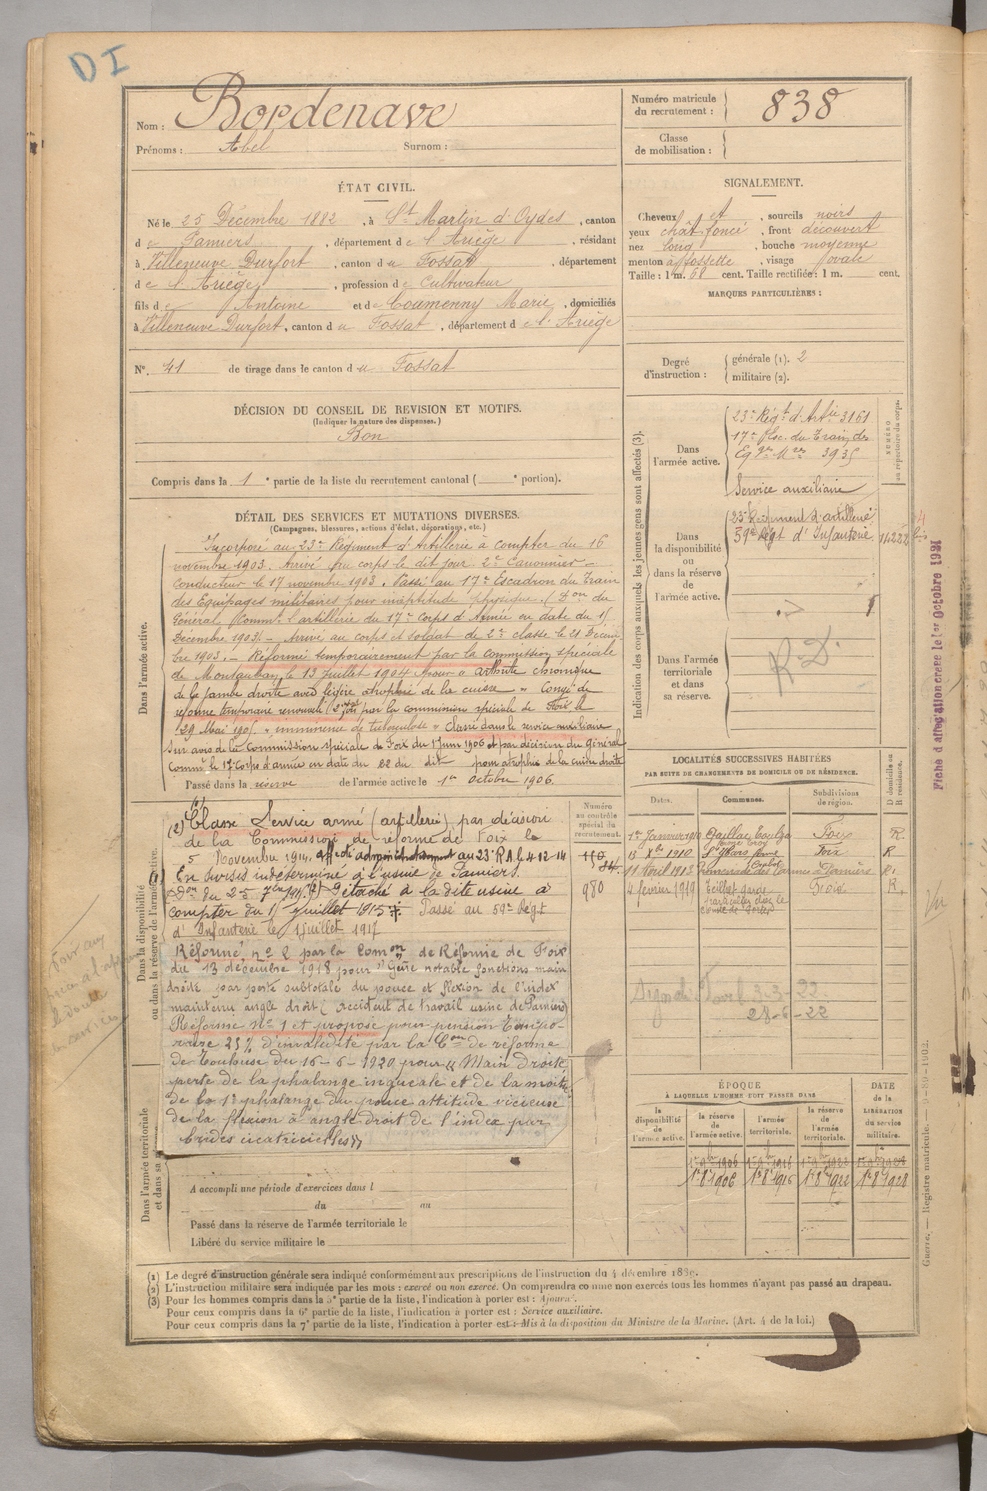 DI
Nom : Bordenave
Prénoms : Abel Surnom :
Numéro matricule du recrutement : 838
Classe de mobilisation :
ÉTAT CIVIL.
Né le 25 Décembre 1882, à St Martin d'Oydes, canton
de Pamiers, département de l'Ariège, résidant
à Villeneuve Durfort, canton du Fossat, département
de l'Ariège, profession de Cultivateur
fils de Antoine et de Coumenny Marie, domiciliés
à Villeneuve Durfort, canton du Fossat, département de l'Ariège
N° 41 de tirage dans le canton du Fossat
SIGNALEMENT.
Cheveux et, sourcils noirs
yeux chât. foncé, front découvert
nez long, bouche moyenne
menton à fossette, visage ovale
Taille : 1 m. 68 cent. Taille rectifiée : 1 m. cent.
MARQUES PARTICULIÈRES :
Degré d'instruction : générale (1). 2
militaire (2).
DÉCISION DU CONSEIL DE REVISION ET MOTIFS.
(Indiquer la nature des dispenses.)
Bon
Compris dans la 1e partie de la liste du recrutement cantonal ( e portion).
DÉTAIL DES SERVICES ET MUTATIONS DIVERSES.
(Campagnes, blessures, actions d'éclat, décorations, etc.)
Dans l'armée active.
Incorporé au 23e Régiment d'Artillerie à compter du 16
novembre 1903. Arrivé au corps le dit jour 2e Canonnier
conducteur le 17 novembre 1903. Passé au 17e Escadron du Train
des Équipages militaires pour inaptitude physique. (Don du
Général Comm. l'artillerie du 17e Corps d'Armée en date du 15
Décembre 1903) - Arrivé au corps et soldat de 2e classe le 21 Décem-
bre 1903. - Réformé temporairement par la commission spéciale
de Montauban le 13 juillet 1904 pour " arthrite chronique
de la jambe droite avec légère atrophie de la cuisse " Congé de
réforme temporaire renouvelé par la commission spéciale de Foix le
29 Mai 1905 " imminence de tuberculose " Classé dans le service auxiliaire
sur avis de la Commission spéciale de Foix du 1 Juin 1906 et par décision du Général
Commt le 17e Corps d'armée en date du 22 du dit pour atrophie de la cuisse droite
Passé dans la réserve de l'armée active le 1er octobre 1906.
Indication des corps auxquels les jeunes gens sont affectés (3).
NUMÉRO au répertoire du corps.
Dans l'armée active.
23e Régt d'Artie 3161
17e Esc. du Train des
Eq. Mres 3935
Service auxiliaire
Dans la disponibilité ou dans la réserve de l'armée active.
23e Régiment d'artillerie
59e Régt d'Infanterie
Dans l'armée territoriale et dans sa réserve.
R.D.
Fiche d'affectation créée le 1er Octobre 1921
Dans la disponibilité ou dans la réserve de l'armée active.
(2) Classé Service armé (artillerie) par décision
de la Commission de réforme de Foix le
5 Novembre 1914. Affecté administrativement au 23e R.A. le 4-12-14
En sursis indéterminé à l'usine de Pamiers.
Détaché à la dite usine à
compter du 1er Juillet 1915. Passé au 59e Régt
d'Infanterie le 1 juillet 1917
Réformé n° 2 par la Comon de Réforme de Foix
du 13 décembre 1918 pour " Gêne notable fonctions main
droite par perte subtotale du pouce et flexion de l'index
maintenu angle droit (accident de travail usine de Pamiers)
Réforme n° 1 et proposé pour pension tempo-
raire 25% d'invalidité par la Con de réforme
de Toulouse du 16-6-1920 pour " Main droite
perte de la phalange unguéale et de la moitié
de la 1e phalange du pouce attitude vicieuse
de la flexion à angle droit de l'index par
brides cicatricielles "
Numéro au contrôle spécial du recrutement.
980
LOCALITÉS SUCCESSIVES HABITÉES
PAR SUITE DE CHANGEMENTS DE DOMICILE OU DE RÉSIDENCE.
Dates. Communes. Subdivisions de région. D domicile ou R résidence.
1er Janvier 1910 Gaillac Toulza Foix R.
13 Xbre 1910 Foix R
11 Avril 1913 Pamiers R
4 février 1919 Teilhet garde particulier chez le comte de Foix R.
3-3-22
28-6-22
Dans l'armée territoriale et dans sa
A accompli une période d'exercices dans l
du au
Passé dans la réserve de l'armée territoriale le
Libéré du service militaire le
ÉPOQUE
À LAQUELLE L'HOMME DOIT PASSER DANS
la disponibilité de l'armée active. la réserve de l'armée active. l'armée territoriale. la réserve de l'armée territoriale.
DATE de la LIBÉRATION du service militaire.
1er 8bre 1906 1er 8bre 1916
1er 8bre 1906 1er 8bre 1916 1er 8bre 1922 1er 8bre 1928
Guerre. — Registre matricule.
(1) Le degré d'instruction générale sera indiqué conformément aux prescriptions de l'instruction du 4 décembre 1889.
(2) L'instruction militaire sera indiquée par les mots : exercé ou non exercé. On comprendra comme non exercés tous les hommes n'ayant pas passé au drapeau.
(3) Pour les hommes compris dans la 5e partie de la liste, l'indication à porter est : Ajourné.
Pour ceux compris dans la 6e partie de la liste, l'indication à porter est : Service auxiliaire.
Pour ceux compris dans la 7e partie de la liste, l'indication à porter est : Mis à la disposition du Ministre de la Marine. (Art. 4 de la loi.)